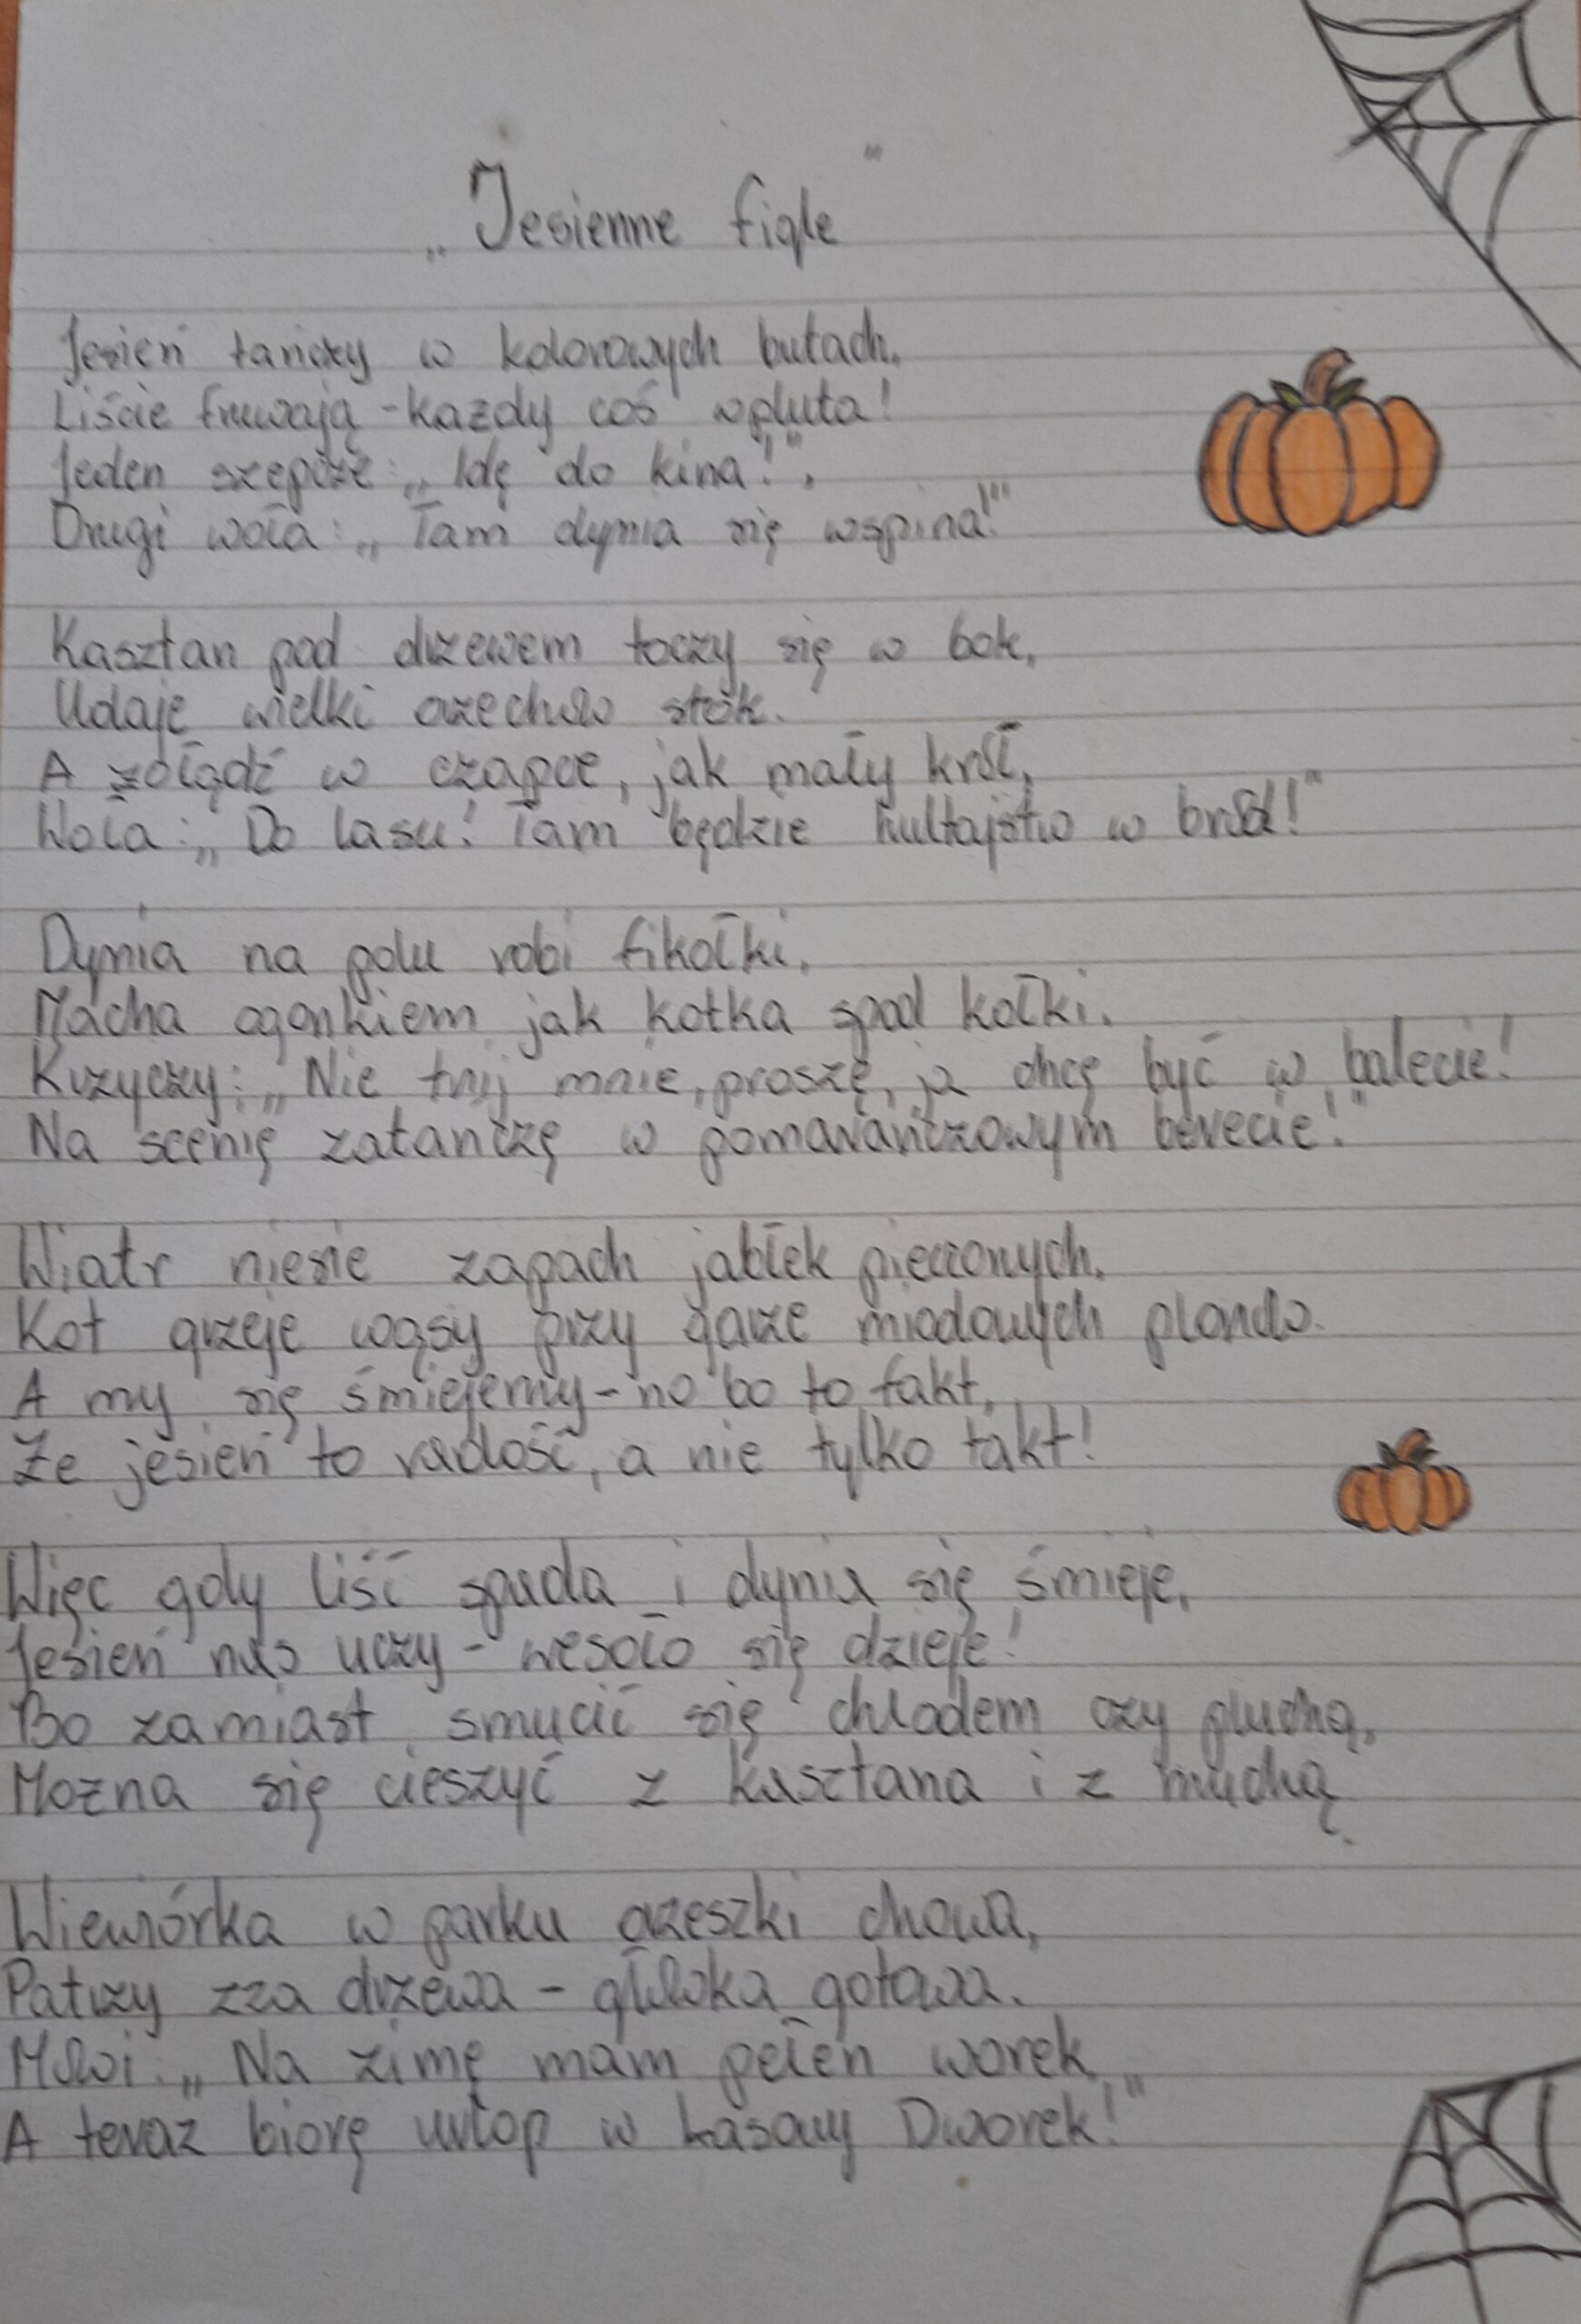 „Jesienne figle"
Jesień tańczy w kolorowych butach,
Liście fruwają - każdy coś wpluta!
Jeden szepcze: „Idę do kina!",
Drugi woła: „Tam dynia się wspina!"
Kasztan pod drzewem toczy się w bok,
Udaje wielki orzechów stok.
A żołądź w czapce, jak mały król,
Woła: „Do lasu! Tam będzie hultajstw w bród!"
Dynia na polu robi fikołki,
Macha ogonkiem jak kotka spod kołki.
Krzyczy: „Nie tnij mnie, proszę, ja chcę być w balecie!
Na scenię zatańczę w pomarańczowym berecie!"
Wiatr niesie zapach jabłek pieczonych,
Kot grzeje wąsy przy garze miodowych plonów.
A my się śmiejemy - no bo to fakt,
Że jesień to radość, a nie tylko takt!
Więc gdy liść spada i dynia się śmieje,
Jesień nas uczy - wesoło się dzieje!
Bo zamiast smucić się chłodem czy pluchą,
Można się cieszyć z kasztana i z muchą.
Wiewiórka w parku orzeszki chowa,
Patrzy zza drzewa - główka gotowa.
Mówi: „Na zimę mam pełen worek,
A teraz biorę urlop w Łasowy Dworek!"